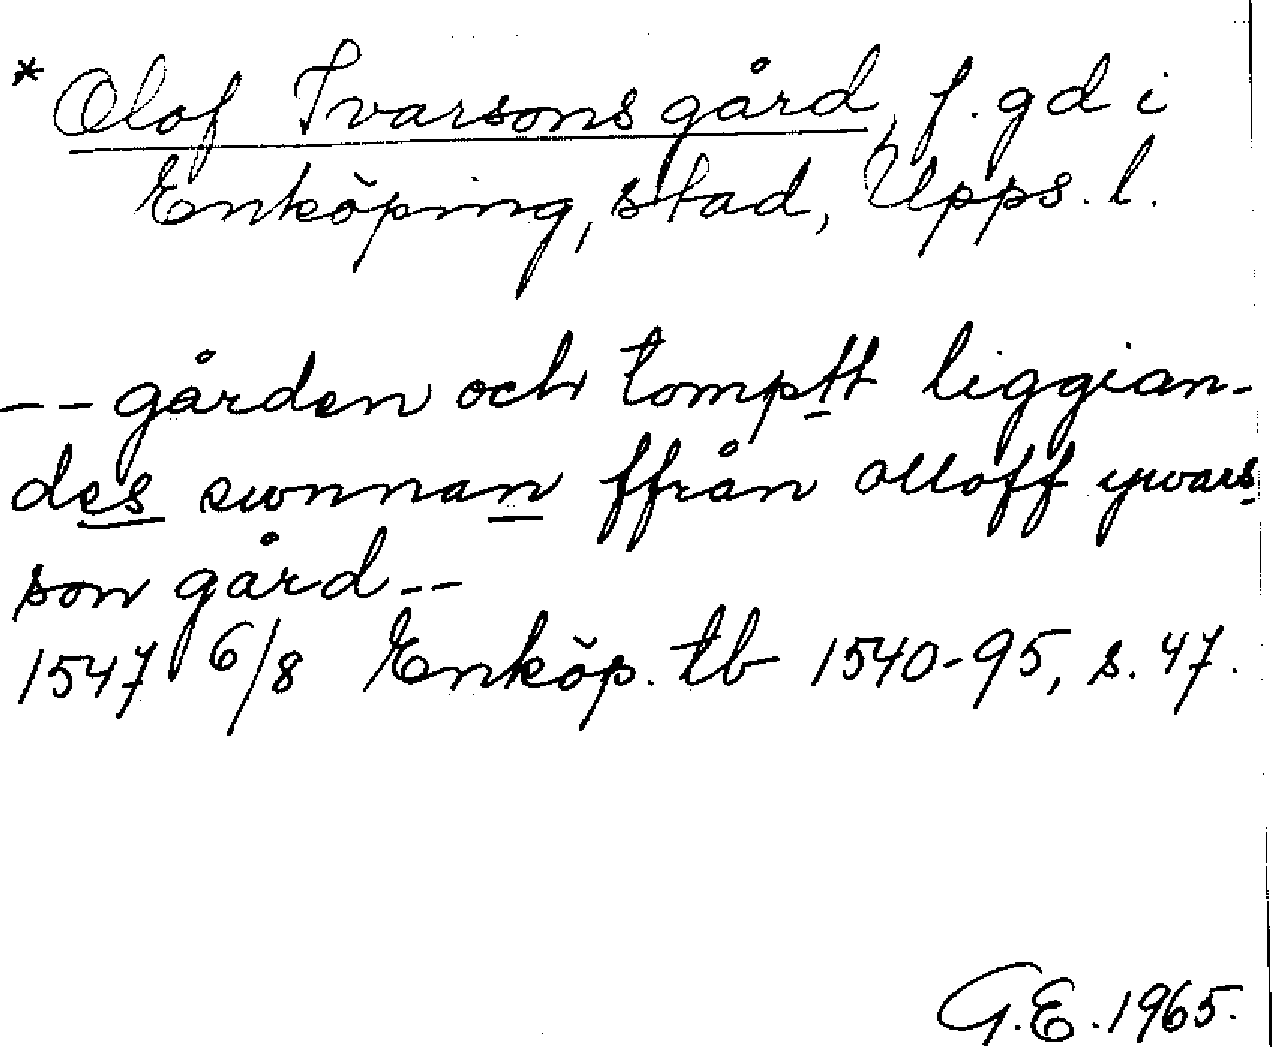 *Olof Ivarsons gård, f. gd i
Enköping, stad, Upps. l.
-- gården och tomptt liggian-
des swnnan ffrån olloff ywars
son gård --
1547 6/8 Enköp. tb 1540-95, s. 47.
G.E. 1965.